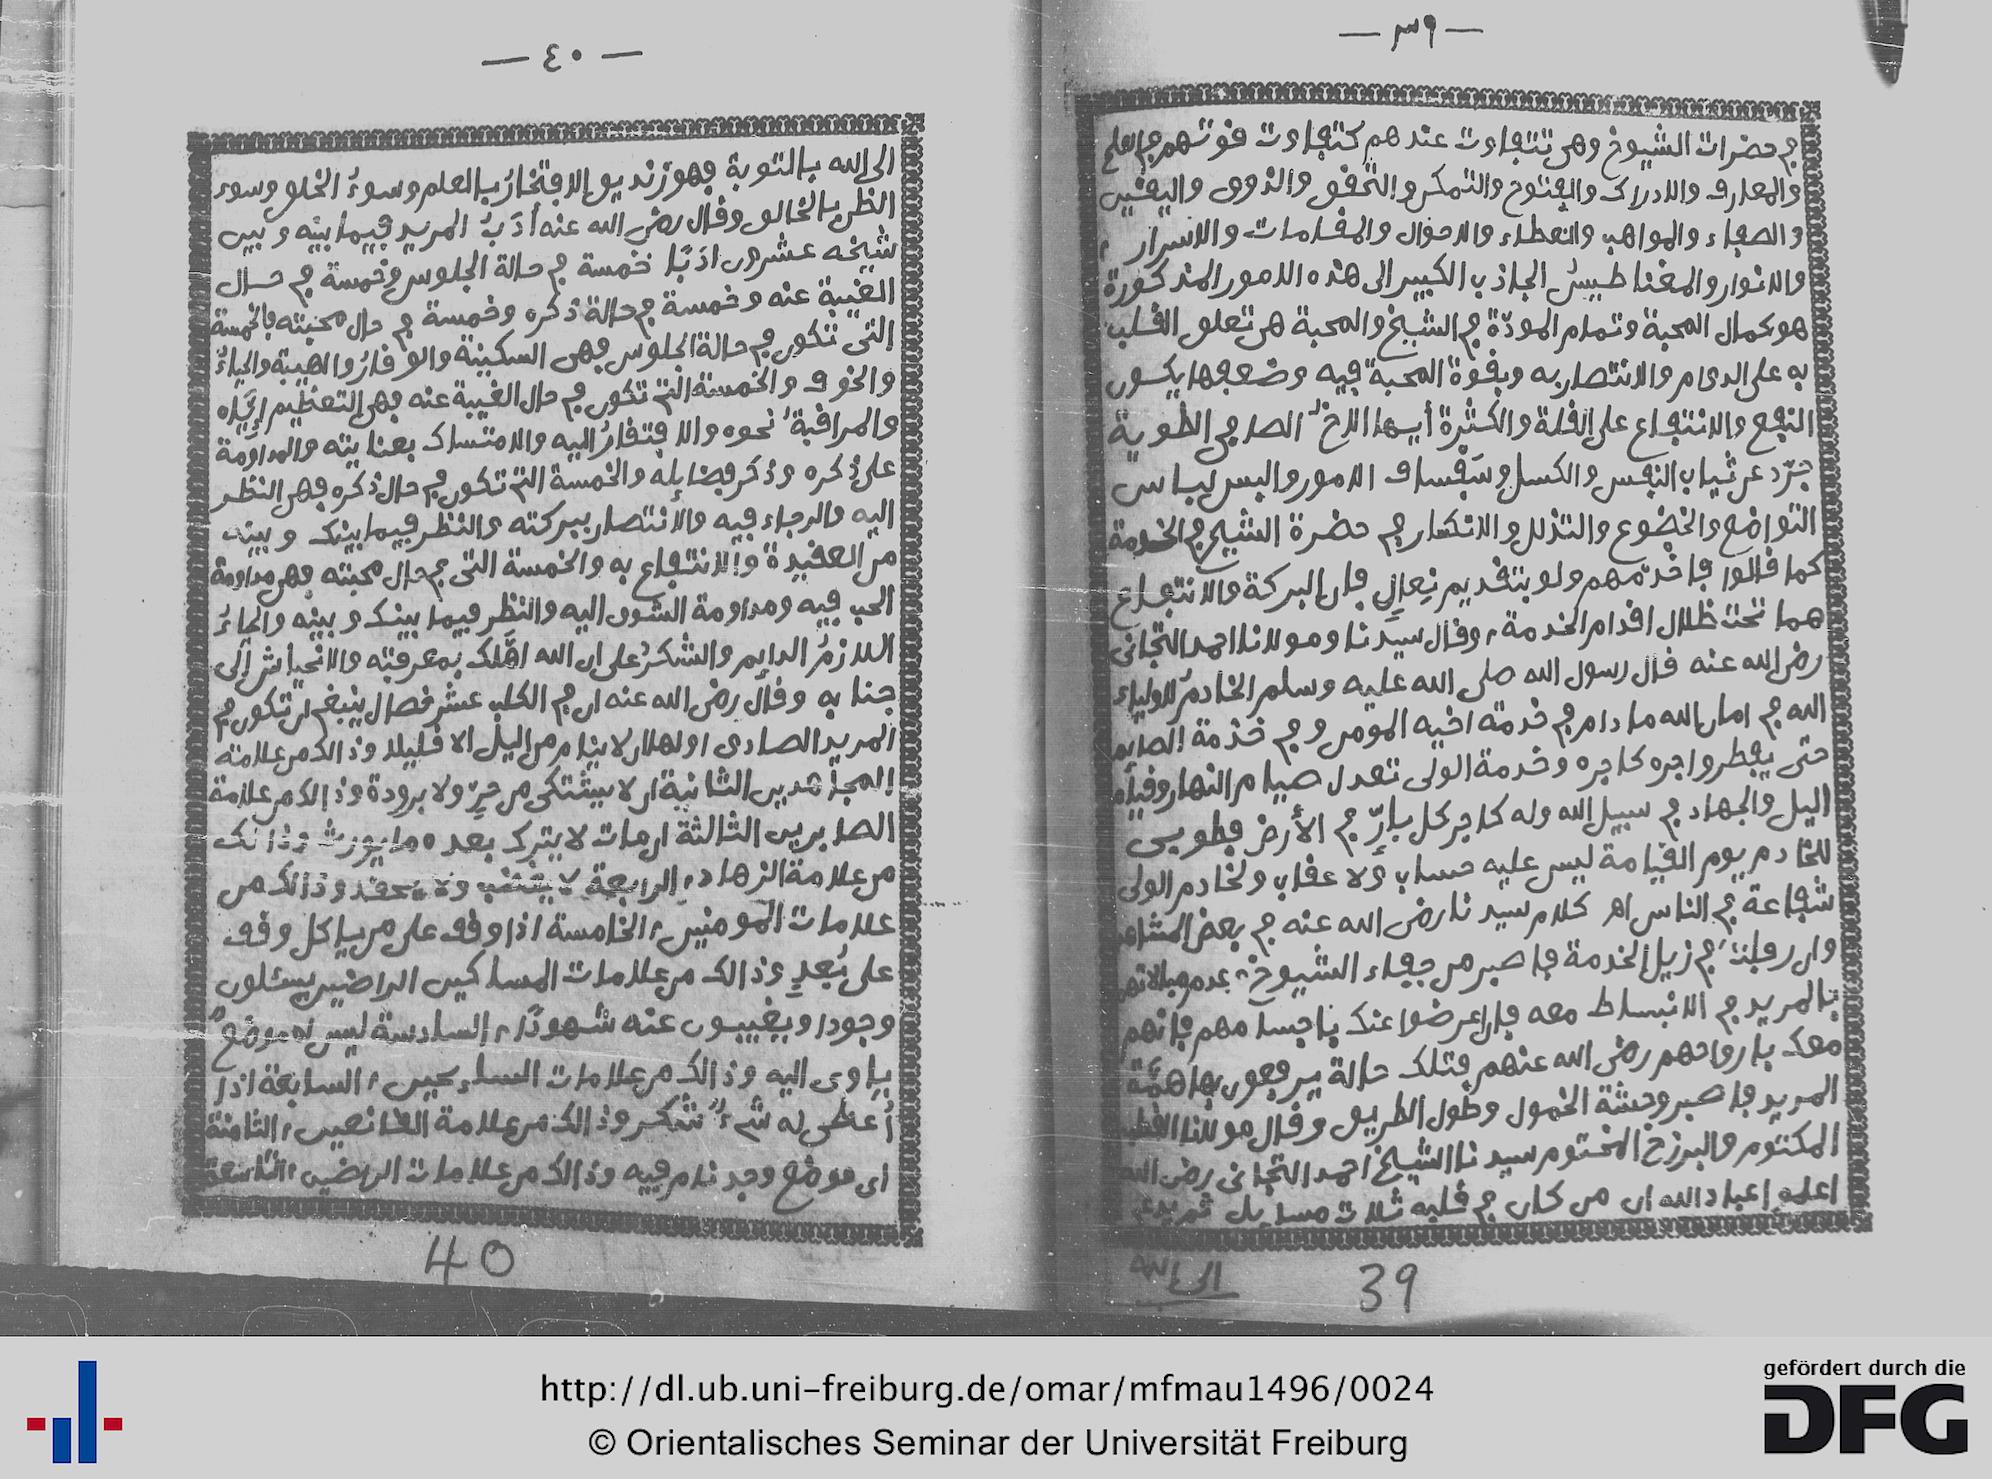 — ٣٩ —
في حضرات الشيوخ وهي تتفاوت عندهم كتفاوت قوتهم في العلم
والمعارف والادراك والفتوح والتمكن والتحقق والذوق واليقين
والصفاء والمواهب والعطاء والاحوال والمقامات والاسرار
والانوار والمغناطيس الجاذب الكبير الى هذه الامور المذكورة
هو كمال المحبة وتمام المودّة في الشيخ والمحبة هي تعلق القلب
به على الدوام والانتصار به وبقوة المحبة فيه وضعفها يكون
النفع والانتفاع على القلة والكثرة أيها الاخ الصادق الطوية
جرّد عن ثياب النفس والكسل وسفساف الامور والبس لباس
التواضع والخضوع والتذلل والانكسار في حضرة الشيخ في الخدمة
كما قالوا فاخدمهم ولو بتقديم نِعالٍ فان البركة والانتفاع
هما تحت ظلال اقدام الخدمة، وقال سيّدنا ومولانا احمد التجاني
رضي الله عنه قال رسول الله صلى الله عليه وسلم الخادمُ للاولياء
الله في امان الله ما دام في خدمة اخيه المومن وفي خدمة الصايم
حتى يفطر واجره كاجره وخدمة الولي تعدل صيام النهار وقيام
اليل والجهاد في سبيل الله وله كاجر كل بارّ في الأرض فطوبى
للخادم يوم القيامة ليس عليه حساب ولا عقاب ولخادم الولي
شفاعة في الناس اهـ كلام سيدنا رضي الله عنه في بعض المشاهد
وان رقيت في زيل الخدمة فاصبر من جفاء الشيوخ، بعدم مبالاتهم
بالمريد في الانبساط معه فإن اعرضوا عنك باجسامهم فإنهم
معك بارواحهم رضي الله عنهم فتلك حالة يرفعون بها همّة
المريد فاصبر وحشة الخمول وطول الطريق وقال مولانا القطب
المكتوم والبرزخ المختوم سيدنا الشيخ احمد التجاني رضي الله
اعلموا عباد الله ان من كان في قلبه ثلاث مسايل ثم يدع
الى الله
39
— ٤٠ —
الى الله بالتوبة فهو زنديق الافتخارُ بالعلم وسوءُ الخلق وسوء
الظن بالخالق وقال رضي الله عنه أدَبُ المريد فيما بينه وبين
شيخه عشرون ادبًا خمسة في حالة الجلوس وخمسة في حال
الغيبة عنه وخمسة في حالة ذكره وخمسة في حال محبته فالخمسة
التي تكون في حالة الجلوس فهي السكينة والوقارُ والهيبة والحياءُ
والخوف والخمسة التي تكون في حال الغيبة عنه فهي التعظيم إيّاه
والمراقبةُ نحوه والافتقارُ اليه والامتساك بعنايته والمداومة
على ذكره وذكر فضايله والخمسة التي تكون في حال ذكره فهي النظر
اليه والرجاء فيه والانتصار ببركته والنظر فيما بينك وبينه
من العقيدة والانتفاع به والخمسة التي في حال محبته فهي مداومة
الحب فيه ومداومة الشوق اليه والنظر فيما بينك وبينه والحياءُ
اللازمُ الدايم والشكرُ على ان الله اهّلك بمعرفته والانحياش إلى
جنابه وقال رضي الله عنه ان في الكلب عشر خصال ينبغي ان تكون في
المريد الصادق اولها ان لا ينام من اليل الا قليلا وذالك من علامة
المجاهدين الثانية ان لا يشتكي من حرّ ولا برودة وذالك من علامة
الصابرين الثالثة ان مات لا يترك بعده ما يورث وذالك
من علامة الزهاد، الرابعة لا يغضب ولا يحقد وذالك من
علامات المومنين، الخامسة اذا وقف على من ياكل وقف
على بُعدٍ وذالك من علامات المساكين الراضين يسئلون
وجودا ويغيبون عنه شهودًا، السادسة ليس له موضعٌ
ياوى اليه وذالك من علامات السايحين، السابعة اذا
أُعطي له شيءٌ شكر وذالك من علامة القانعين، الثامنة
اى موضع وجد نام فيه وذالك من علامات الراضين، التاسعة
40
http://dl.ub.uni-freiburg.de/omar/mfmau1496/0024
© Orientalisches Seminar der Universität Freiburg
gefördert durch die
DFG